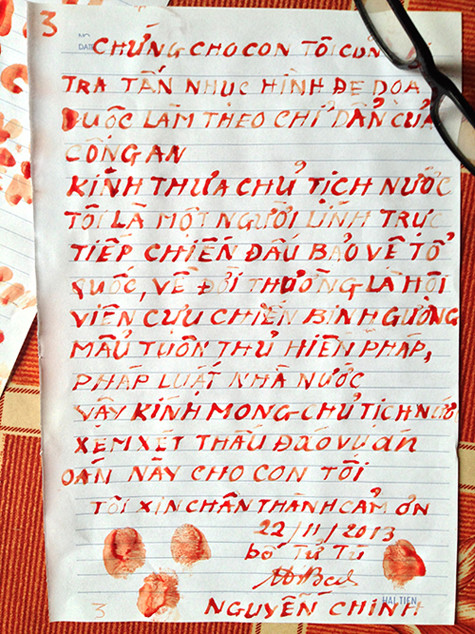 3
NO
DATE
CHỨNG CHO CON TÔI CÒN
TRA TẤN NHỤC HÌNH ĐE DOA
BUỘC LÀM THEO CHỈ DẪN CỦA
CÔNG AN
KÍNH THƯA CHỦ TỊCH NƯỚC
TÔI LÀ MỘT NGƯỜI LÍNH TRỰC
TIẾP CHIẾN ĐẤU BẢO VỆ TỔ
QUỐC, VỀ ĐỜI THƯỜNG LÀ HỘI
VIÊN CỰU CHIẾN BINH GƯƠNG
MẨU TUÔN THỦ HIẾN PHÁP,
PHÁP LUẬT NHÀ NƯỚC
VẬY KÍNH MONG CHỦ TỊCH NƯỚC
XEM XÉT THẤU ĐÁO VỤ ÁN
OAN NÀY CHO CON TÔI
TÔI XIN CHÂN THÀNH CẢM ƠN
22/11/2013
Bố Tử Tù
HẢI TIẾN
3 NGUYỄN CHINH